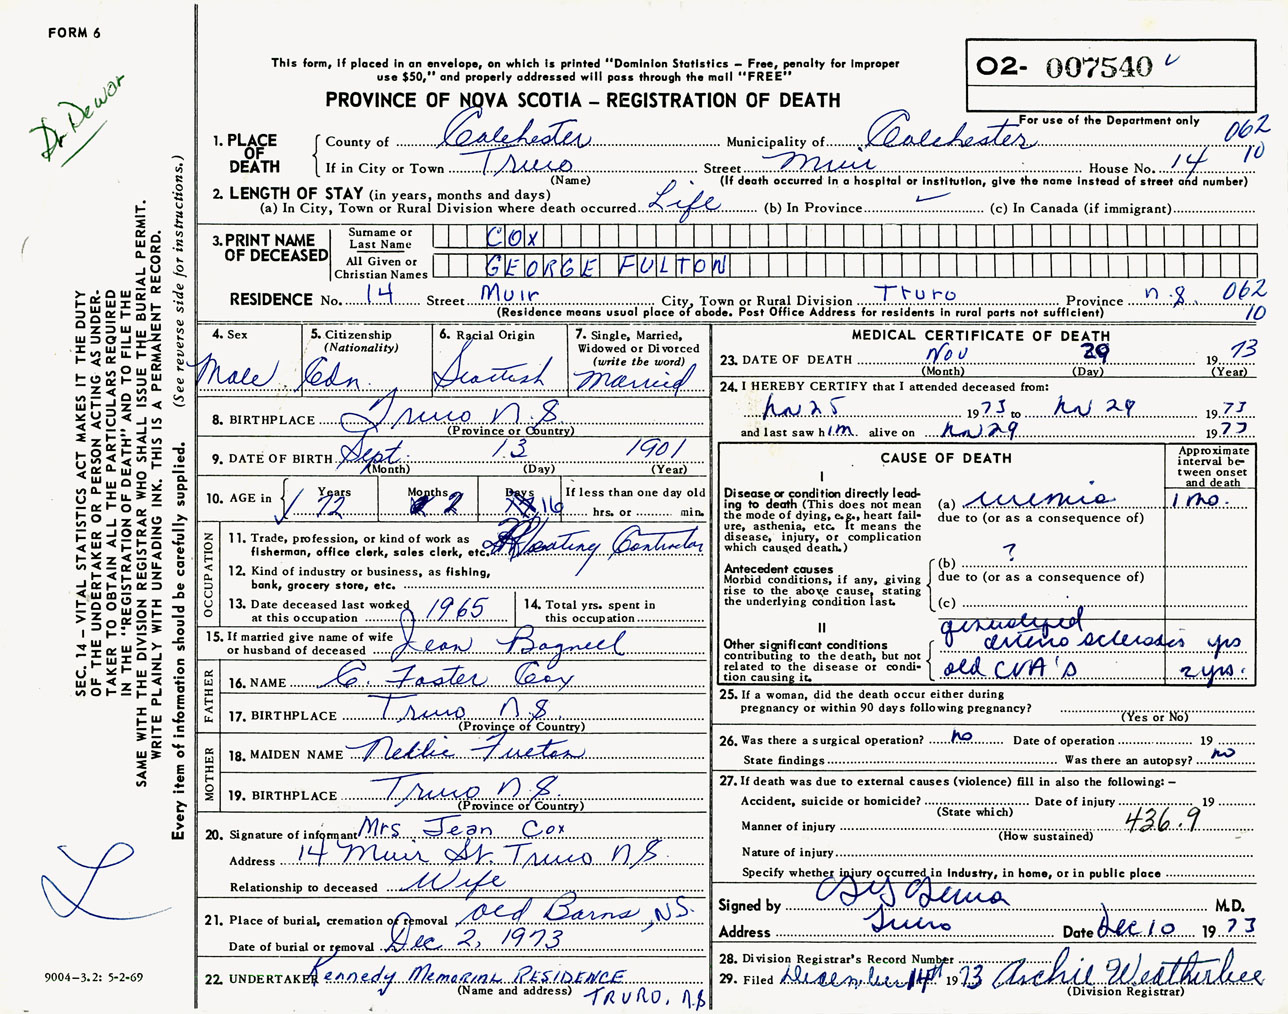 FORM 6
Dr Dewar
This form, if placed in an envelope, on which is printed "Dominion Statistics – Free, penalty for improper
use $50," and properly addressed will pass through the mail "FREE"
PROVINCE OF NOVA SCOTIA – REGISTRATION OF DEATH
O2- 007540
For use of the Department only
062
10
1. PLACE OF DEATH County of Colchester Municipality of Colchester
If in City or Town Truro Street Muir House No. 14
(Name) (If death occurred in a hospital or institution, give the name instead of street and number)
2. LENGTH OF STAY (in years, months and days)
(a) In City, Town or Rural Division where death occurred Life (b) In Province ✓ (c) In Canada (if immigrant)
3. PRINT NAME OF DECEASED
Surname or Last Name COX
All Given or Christian Names GEORGE FULTON
RESIDENCE No. 14 Street Muir City, Town or Rural Division Truro Province n.s. 062
(Residence means usual place of abode. Post Office Address for residents in rural parts not sufficient) 10
4. Sex Male
5. Citizenship (Nationality) Cdn.
6. Racial Origin Scottish
7. Single, Married, Widowed or Divorced (write the word) Married
8. BIRTHPLACE Truro N.S
(Province or Country)
9. DATE OF BIRTH Sept. 13 1901
(Month) (Day) (Year)
10. AGE in Years 72 Months 2 Days 16 If less than one day old hrs. or min.
OCCUPATION
11. Trade, profession, or kind of work as
fisherman, office clerk, sales clerk, etc. Contractor
12. Kind of industry or business, as fishing,
bank, grocery store, etc.
13. Date deceased last worked at this occupation 1965
14. Total yrs. spent in this occupation
15. If married give name of wife or husband of deceased Jean Bagnell
FATHER
16. NAME C. Foster Cox
17. BIRTHPLACE Truro N.S.
(Province of Country)
MOTHER
18. MAIDEN NAME Nellie Fulton
19. BIRTHPLACE Truro N.S.
(Province or Country)
20. Signature of informant Mrs Jean Cox
Address 14 Muir St. Truro N.S.
Relationship to deceased Wife
21. Place of burial, cremation or removal Old Barns, N.S.
Date of burial or removal Dec 2, 1973
22. UNDERTAKER Kennedy Memorial RESIDENCE
(Name and address) TRURO, N.S
MEDICAL CERTIFICATE OF DEATH
23. DATE OF DEATH Nov 29 1973
(Month) (Day) (Year)
24. I HEREBY CERTIFY that I attended deceased from:
Nov 25 1973 to Nov 29 1973
and last saw him alive on Nov 29 1973
CAUSE OF DEATH
Approximate interval between onset and death
I
Disease or condition directly lead-
ing to death (This does not mean
the mode of dying, e.g., heart fail-
ure, asthenia, etc. It means the
disease, injury, or complication
which caused death.)
(a) uremia 1 mo.
due to (or as a consequence of)
Antecedent causes
Morbid conditions, if any, giving
rise to the above cause, stating
the underlying condition last.
(b) ?
due to (or as a consequence of)
(c)
II
Other significant conditions
contributing to the death, but not
related to the disease or condi-
tion causing it.
generalized
arterio sclerosis yrs
old CVA's 2 yrs.
25. If a woman, did the death occur either during
pregnancy or within 90 days following pregnancy?
(Yes or No)
26. Was there a surgical operation? no Date of operation 19
State findings Was there an autopsy? no
27. If death was due to external causes (violence) fill in also the following: –
Accident, suicide or homicide? Date of injury 19
(State which)
Manner of injury 436.9
(How sustained)
Nature of injury
Specify whether injury occurred in Industry, in home, or in public place
Signed by M.D.
Address Truro Date Dec 10 1973
28. Division Registrar's Record Number
29. Filed December 14th 1973 Archie Weatherbee
(Division Registrar)
SEC. 14 – VITAL STATISTICS ACT MAKES IT THE DUTY
OF THE UNDERTAKER OR PERSON ACTING AS UNDER-
TAKER TO OBTAIN ALL THE PARTICULARS REQUIRED
IN THE "REGISTRATION OF DEATH" AND TO FILE THE
SAME WITH THE DIVISION REGISTRAR WHO SHALL ISSUE THE BURIAL PERMIT.
WRITE PLAINLY WITH UNFADING INK. THIS IS A PERMANENT RECORD.
Every item of information should be carefully supplied. (See reverse side for instructions.)
9004–3.2: 5-2-69